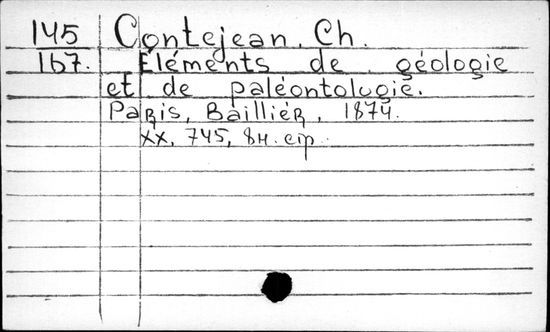 145 Contejean. Ch.
167. Eléments de géologie
et de paléontologie.
Paris, Baillièr, 1874.
XX, 745, 8н. стр.